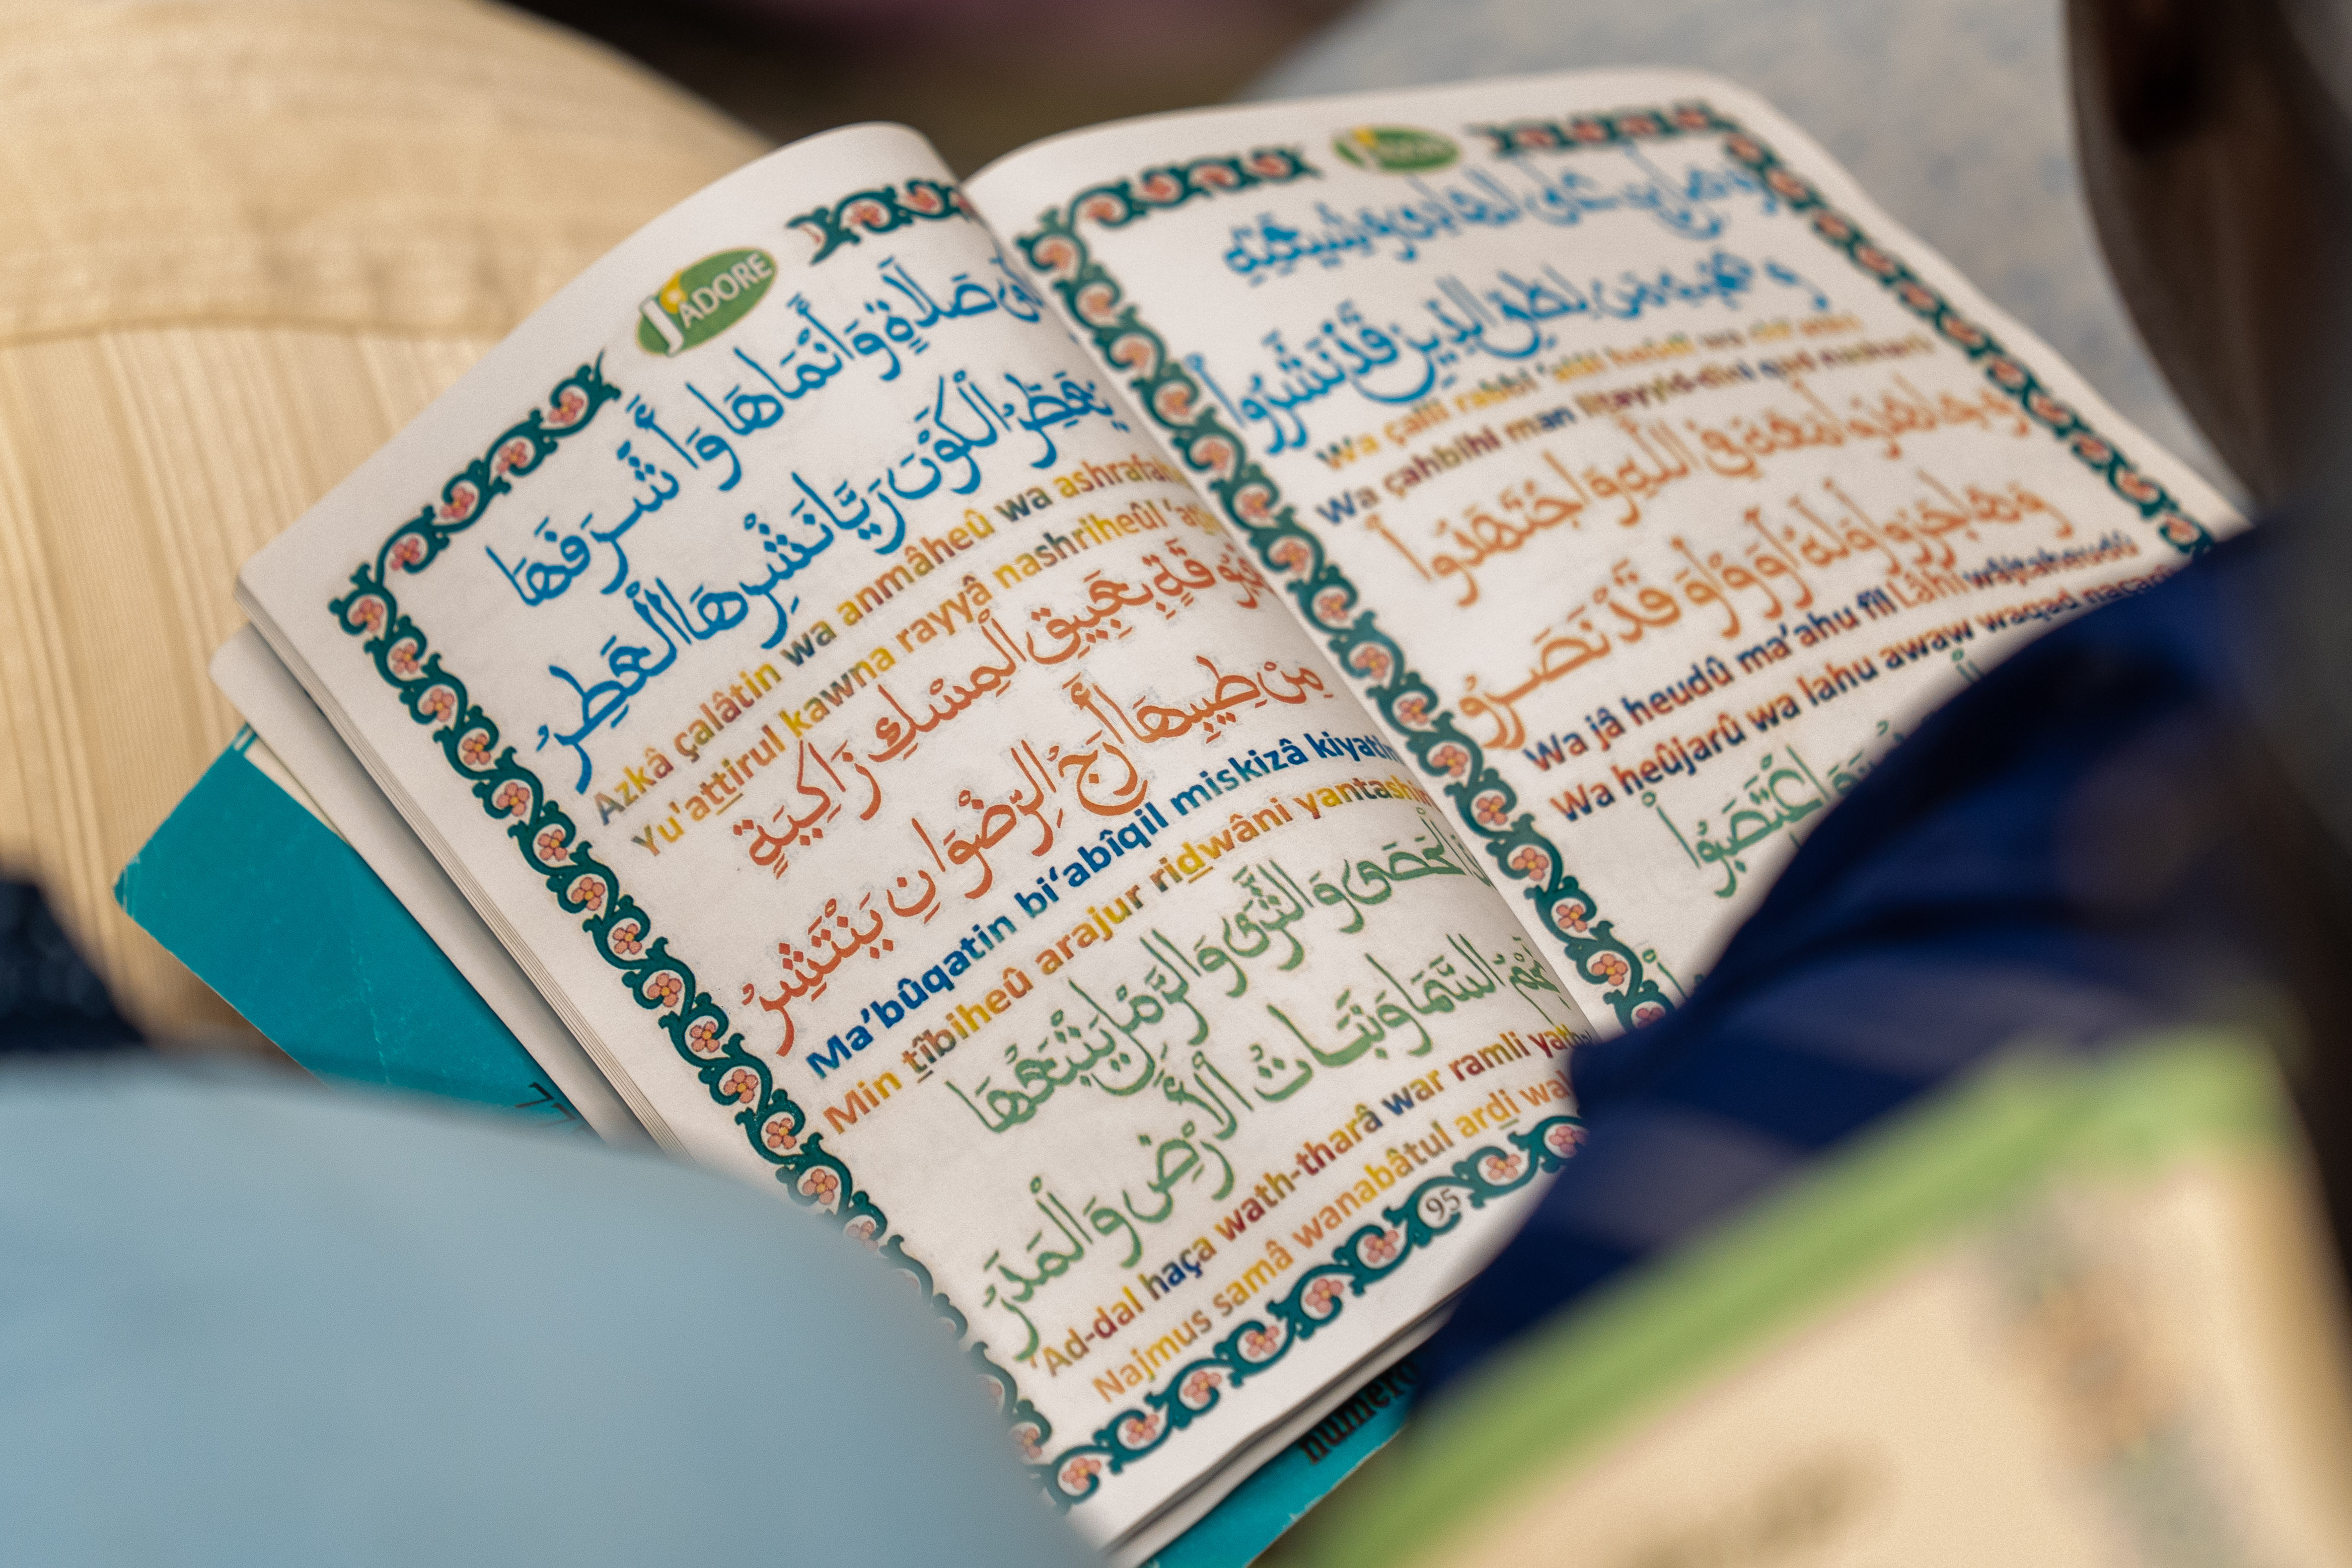 J'ADORE
صَلَاةٍ وَأَنْمَاهَا وَأَشْرَفَهَا
يُعَطِّرُ الْكَوْنَ رَيَّا نَشْرِهَا الْعَطِرُ
Azkâ çalâtin wa anmâheû wa ashrafa
Yu'attirul kawna rayyâ nashriheûl
بِعَبِيقِ الْمِسْكِ زَاكِيَةٍ
مِنْ طِيبِهَا أَرَجُ الرِّضْوَانِ يَنْتَشِرُ
Ma'bûqatin bi'abîqil miskizâ kiyatin
Min tîbiheû arajur ridwâni yantash
الْحَصَى وَالثَّرَى وَالرَّمْلِ يَتْبَعُهَا
نَجْمُ السَّمَا وَنَبَاتُ الْأَرْضِ وَالْمَدَرُ
'Ad-dal haça wath-tharâ war ramli
Najmus samâ wanabâtul ardi wal
95
وَصَلِّ رَبِّ عَلَى الْهَادِي وَشِيعَتِهِ
وَصَحْبِهِ مَنْ لِطَيِّ الدِّينِ قَدْ نَشَرُوا
Wa çalli rabbi 'alal heûdî wa
Wa çahbihî man litayyid-dîni qad nasharû
وَجَاهَدُوا مَعَهُ فِي اللَّهِ وَاجْتَهَدُوا
وَهَاجَرُوا وَلَهُ آوَوْا وَقَدْ نَصَرُوا
Wa jâ heudû ma'ahu fîl Lâhi wajtaheudû
Wa heûjarû wa lahu awaw waqad naçarû
وَاعْتَصَبُوا
numéro